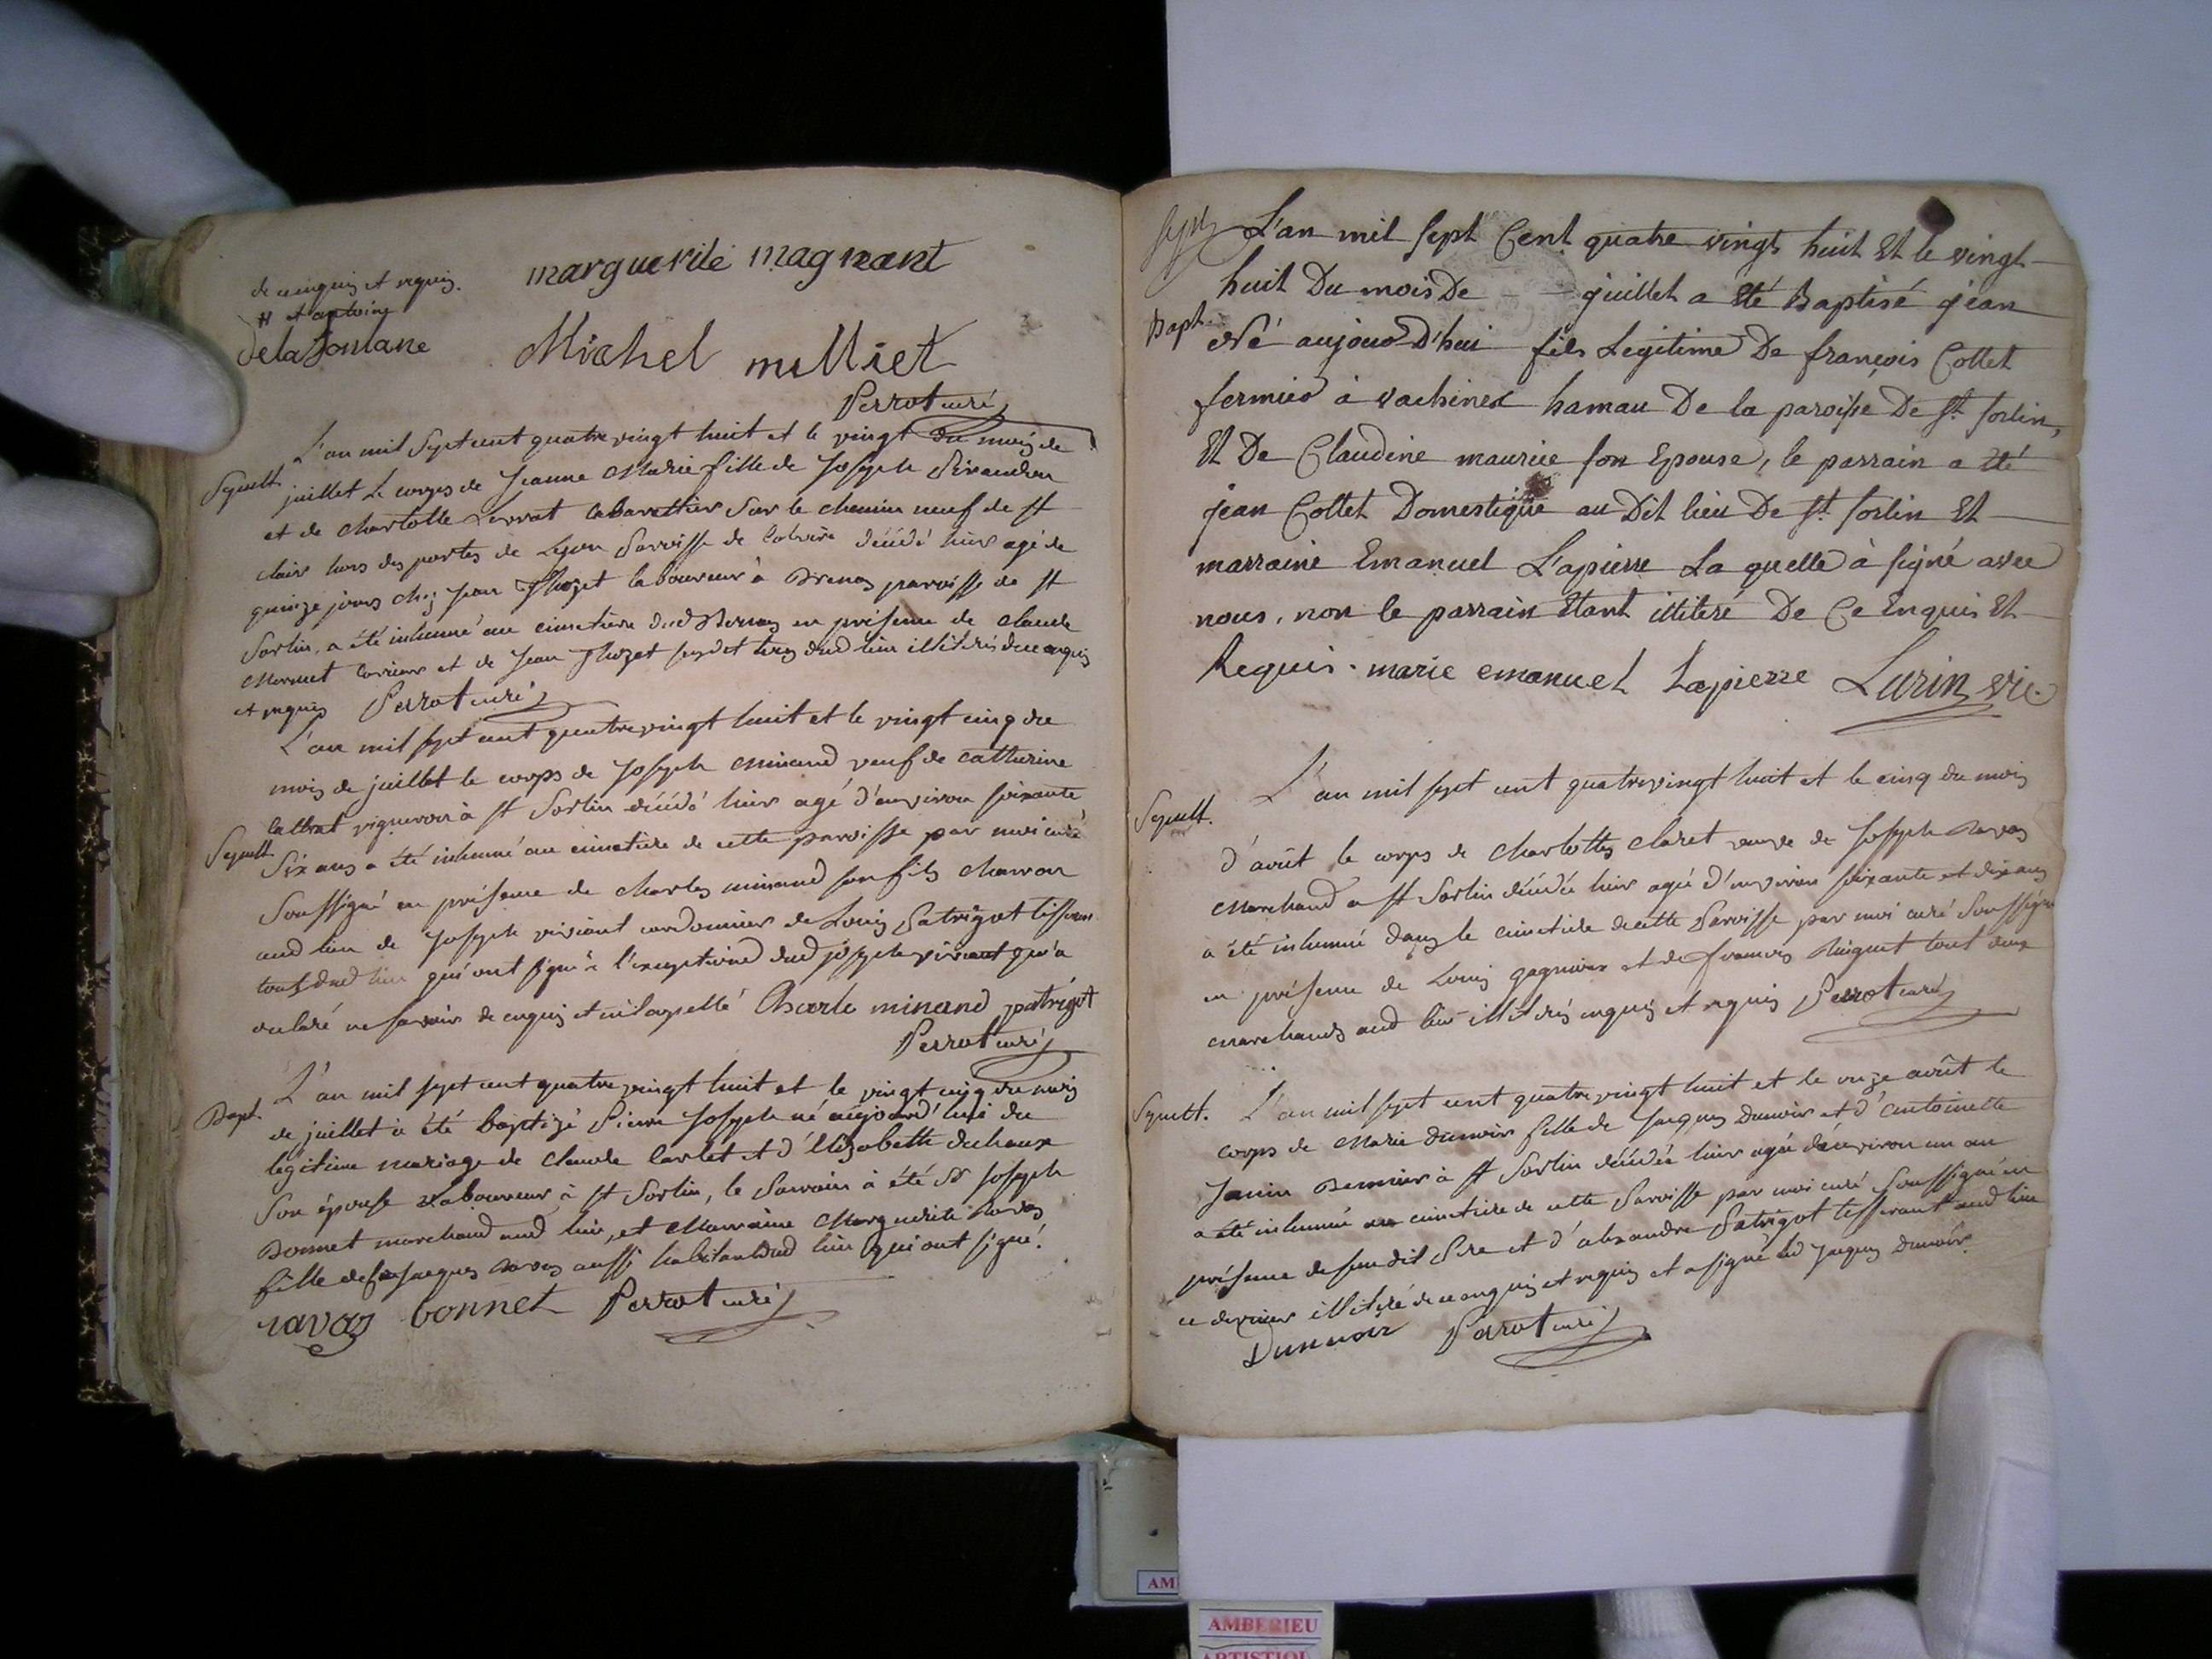 de ce enquis et requis.
# et antoine
delafontane
marguerite magnant
Michel milliet
Perrot curé
L'an mil Sept cent quatre vingt huit et le vingt du mois de
Sepult.
juillet Le corps de Jeanne Marie fille de Joseph
et de Charlotte cabarettier Sur le chemin neuf de st
clair hors des portes de Lyon Paroisse de décédé hier agé de
quinze jours chez Jean laboureur à paroisse de st
Sorlin, a été inhumé au cimetiere dud en présence de claude
et de Jean dud lieu illitérés de ce enquis
et requis Perrot curé
L'an mil sept cent quatre vingt huit et le vingt cinq du
mois de juillet le corps de Joseph minand veuf de Catherine
vigneron à st Sorlin décédé hier agé d'environ soixante
Sepult.
Six ans a été inhumé au cimetiere de cette paroisse par moi curé
Soussigné en présence de Charles minand son fils
aud lieu de Joseph viviant cordonnier de Louis Patrigot tisseran
tous dud lieu qui ont signé à l'exception dud joseph viviant qui a
declaré ne savoir de enquis et Charle minand patrigot
Perrot curé
L'an mil sept cent quatre vingt huit et le vingt cinq du mois
Bapt.
de juillet à été baptizé Pierre Joseph né aujourd'hui du
legitime mariage de Claude Carlet et d'Elizabeth
Son épouse Laboureur à st Sorlin, le Parrain à été Sr Joseph
Bonnet marchand aud lieu, et Marraine Marguerite Ravas
fille de feu Jacques Ravas aussi habitant dud lieu qui ont signé.
ravaz bonnet Perrot curé
L'an mil sept Cent quatre vingt huit Et le vingt
huit Du mois De juillet a Eté Baptisé jean
Bapt.
Né aujourd'hui fils Legitime De françois Collet
fermier à vachiner hamau De la paroisse De st sorlin,
Et De Claudine maurice son Epouse, le parrain a Eté
jean Collet Domestique au Dit lieu De st sorlin Et
marraine Emanuel Lapierre La quelle à signé avec
nous, non le parrain Etant illiteré De Ce Enquis Et
Requis. marie emanuel Lapierre Lurin vic.
L'an mil sept cent quatre vingt huit et le cinq du mois
Sepult.
d'août le corps de Charlotte Claret veuve de Joseph Ravas
Marchand a st Sorlin décédée hier agée d'environ soixante et dix ans
a été inhumée dans le cimetiere de cette Paroisse par moi curé Soussigné
en présence de Louis gagnieux et de francois Ringuet tout deux
marchands aud lieu illitérés enquis et requis Perrot curé
Sepult.
L'an mil sept cent quatre vingt huit et le onze août le
corps de Marie Dunoir fille de Jacques Dunoir et d'antoinette
Janin à st Sorlin décédée hier agée d'environ un an
a été inhumée au cimetiere de cette Paroisse par moi curé Soussigné en
présence de son dit Pere et d'alexandre Patrigot tisserant aud lieu
ce dernier illiteré de ce enquis et requis et a signé led Jacques Dunoir.
Dunnoir Perrot curé
AM
AMBERIEU